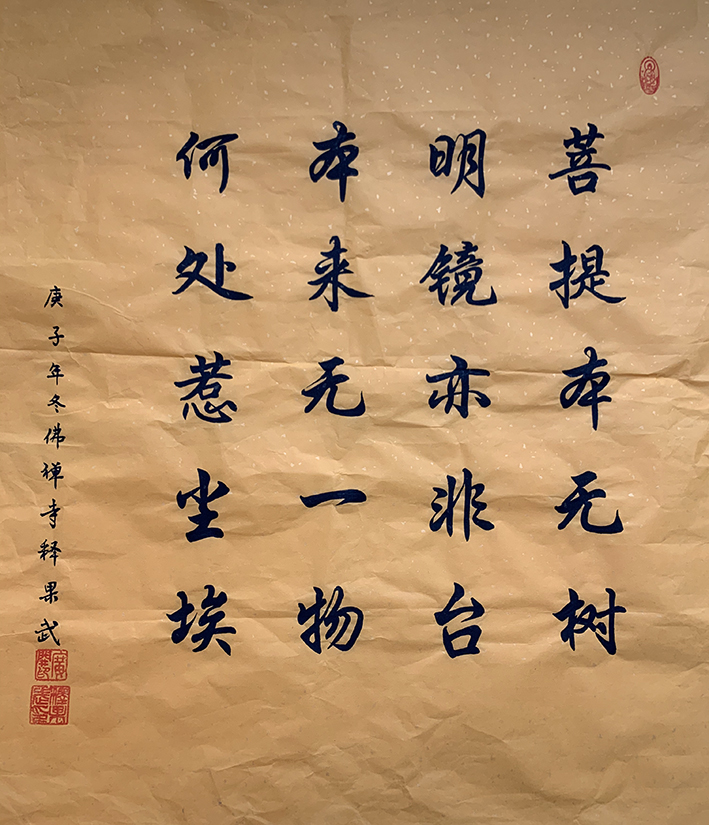 菩提本无树
明镜亦非台
本来无一物
何处惹尘埃
庚子年冬佛禅寺释果武